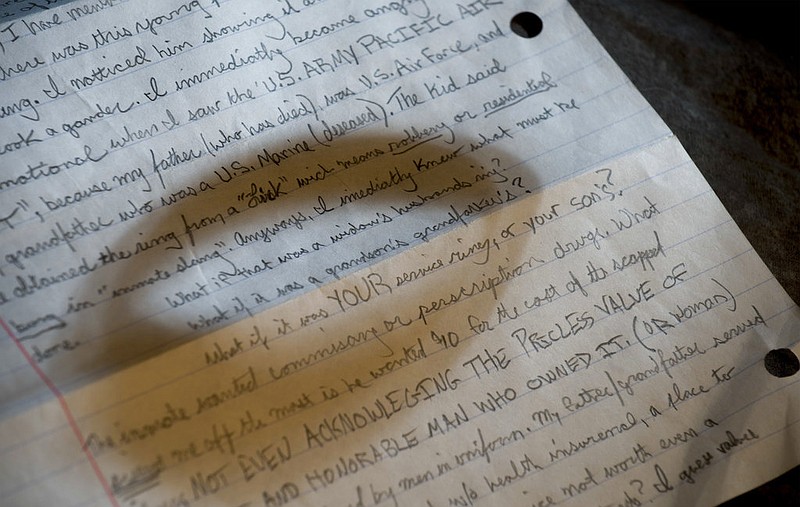 I have
here was this young
ing. I notticed him showing it
ook a gander. I immediatly became angry
motional when I saw the U.S. ARMY PACIFIC AIR
", because my father (who has died) was U.S. Air Force, and
grandfather who was a U.S. Marine (deseased). The kid said
e obtained the ring from a "Lick" wich means robbery or residential
burg in "inmate slang". Anyways, I imediatly knew what must be
done.
What, if that was a widow's husbands ring?
What if it was a grandson's grandfather's?
What if it was YOUR service ring, or your son's?
The inmate wanted commisary or perscription drugs. What
me off the most is he wanted $10 for the cost of the scrapped
NOT EVEN ACKNOWLEGING THE PRICLES VALUE OF
AND HONORABLE MAN WHO OWNED IT. (OR WOMAN)
by men in uniform. My father/grandfather served
w/o health insurense, a place to
not worth even a
? I guess values